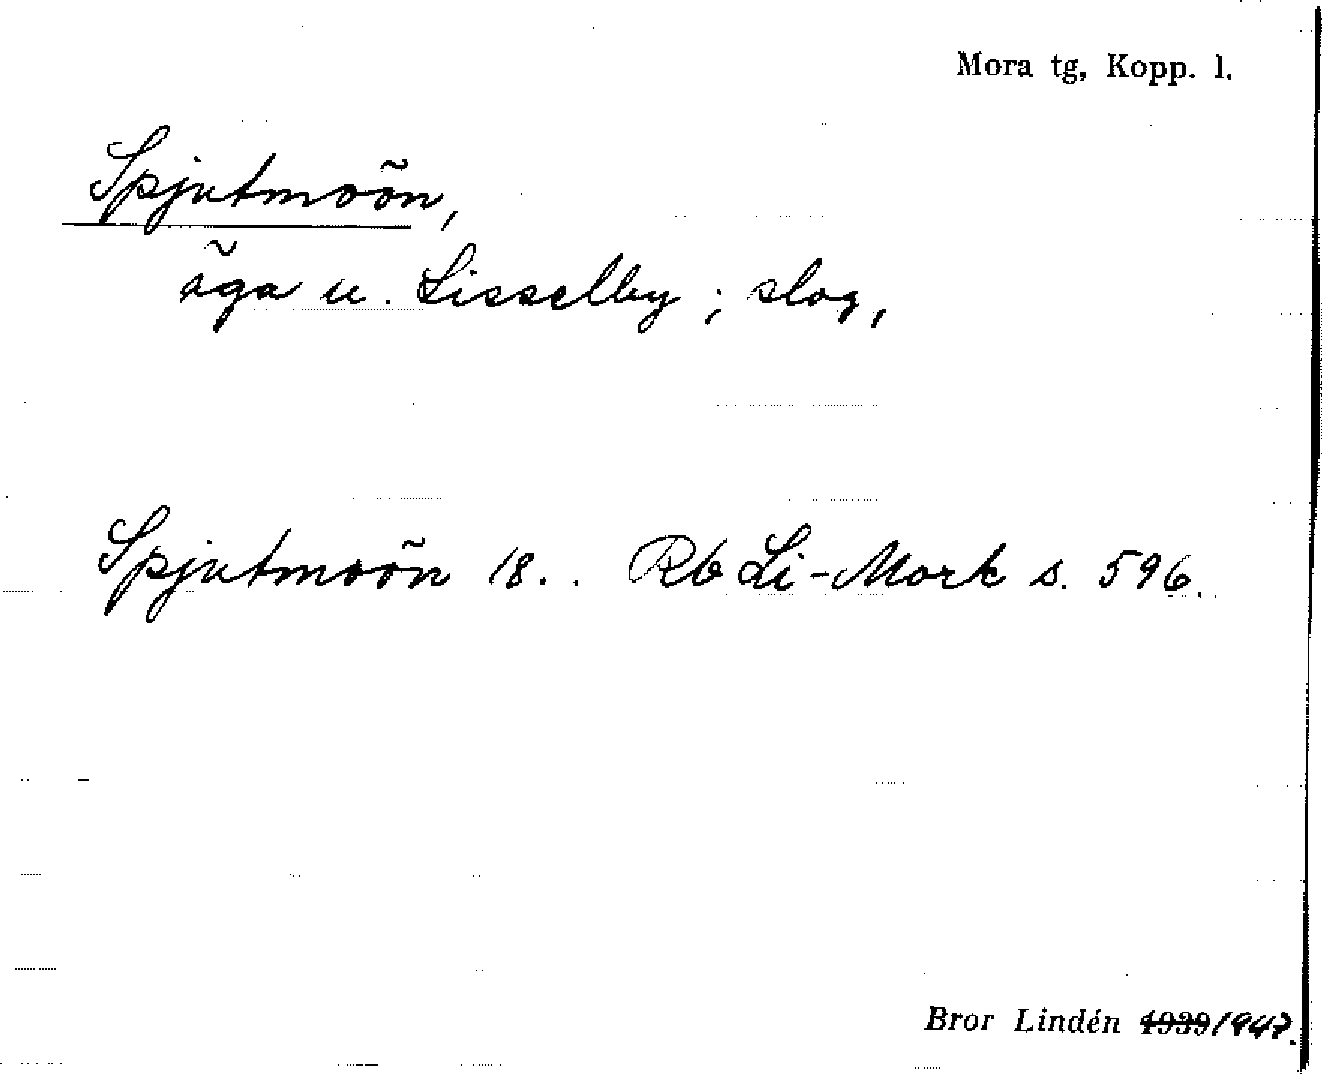 Mora tg, Kopp. l.
Spjutmoön,
äga u. Lisselby; slog,
Spjutmoön 18.. Rb Li-Mork s. 596.
Bror Lindén 1939 1947.